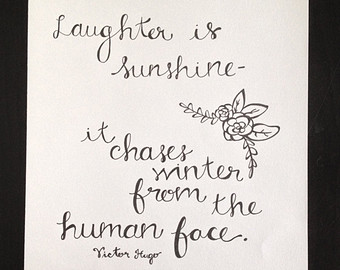 Laughter is
sunshine-
it
chases
winter
from the
human face.
Victor Hugo